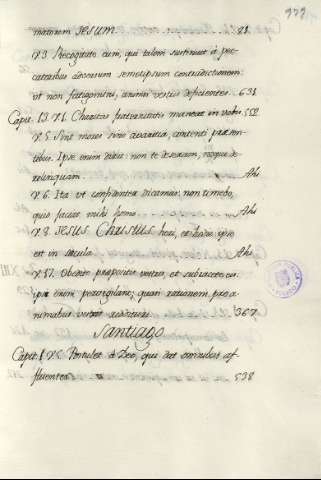 matorem JESUM. 81
v. 3. Recogitate eum, qui talem sustinuit à pec-
catoribus adversum semetipsum contradictionem:
ut non fatigemini, animis vestris deficientes. 631
Capit. 13. v. 1. Charitas fraternitatis maneat in vobis. 552
v. 5. Sint mores sine avaritia, contenti præsen-
tibus. Ipse enim dixit: non te deseram, neque de-
relinquam. Ahi
v. 6. Ita ut confidenter dicamus: non timebo,
quid faciat mihi homo. Ahi
v. 8. JESUS CHRISTUS heri, et hodie: ipse
est in sæcula. Ahi
v. 17. Obedite præpositis vestris, et subjacete eis;
ipsi enim pervigilant; quasi rationem pro a-
nimabus vestris reddituri. 367
Santiago
Capit. 1. v. 5. Postulet à Deo, qui dat omnibus af-
fluenter. 538